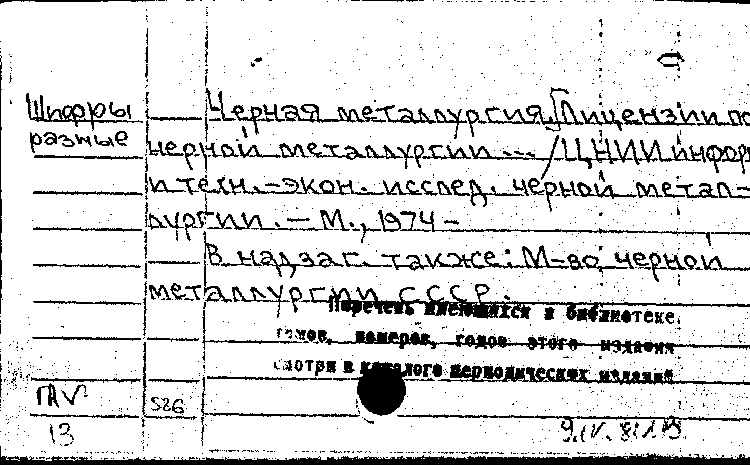 Шифры
разные
Черная металлургия. [Лицензии по
черной металлургии ... / ЦНИИ информ
и техн.-экон. исслед. черной метал-
лургии. - М., 1974 -
В надзаг. также: М-во черной
металлургии СССР.
Перечень имеющихся в библиотеке
томов, номеров, годов этого издания
смотри в каталоге периодических изданий
586
13